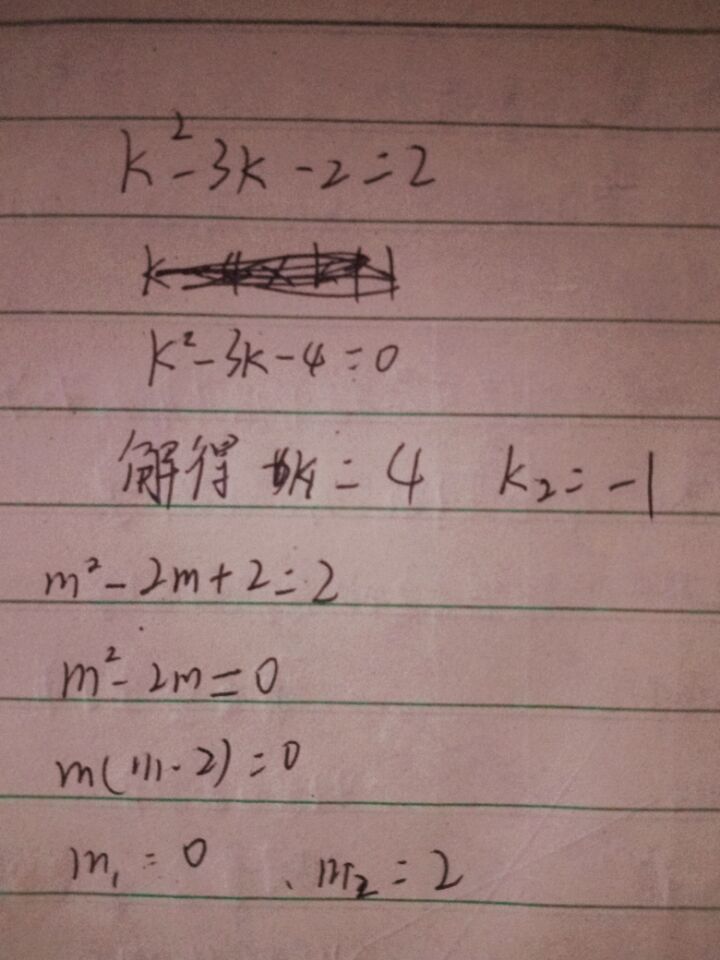 k²-3k-2=2
k²-3k-4=0
解得 k₁=4 k₂=-1
m²-2m+2=2
m²-2m=0
m(m-2)=0
m₁=0 、m₂=2